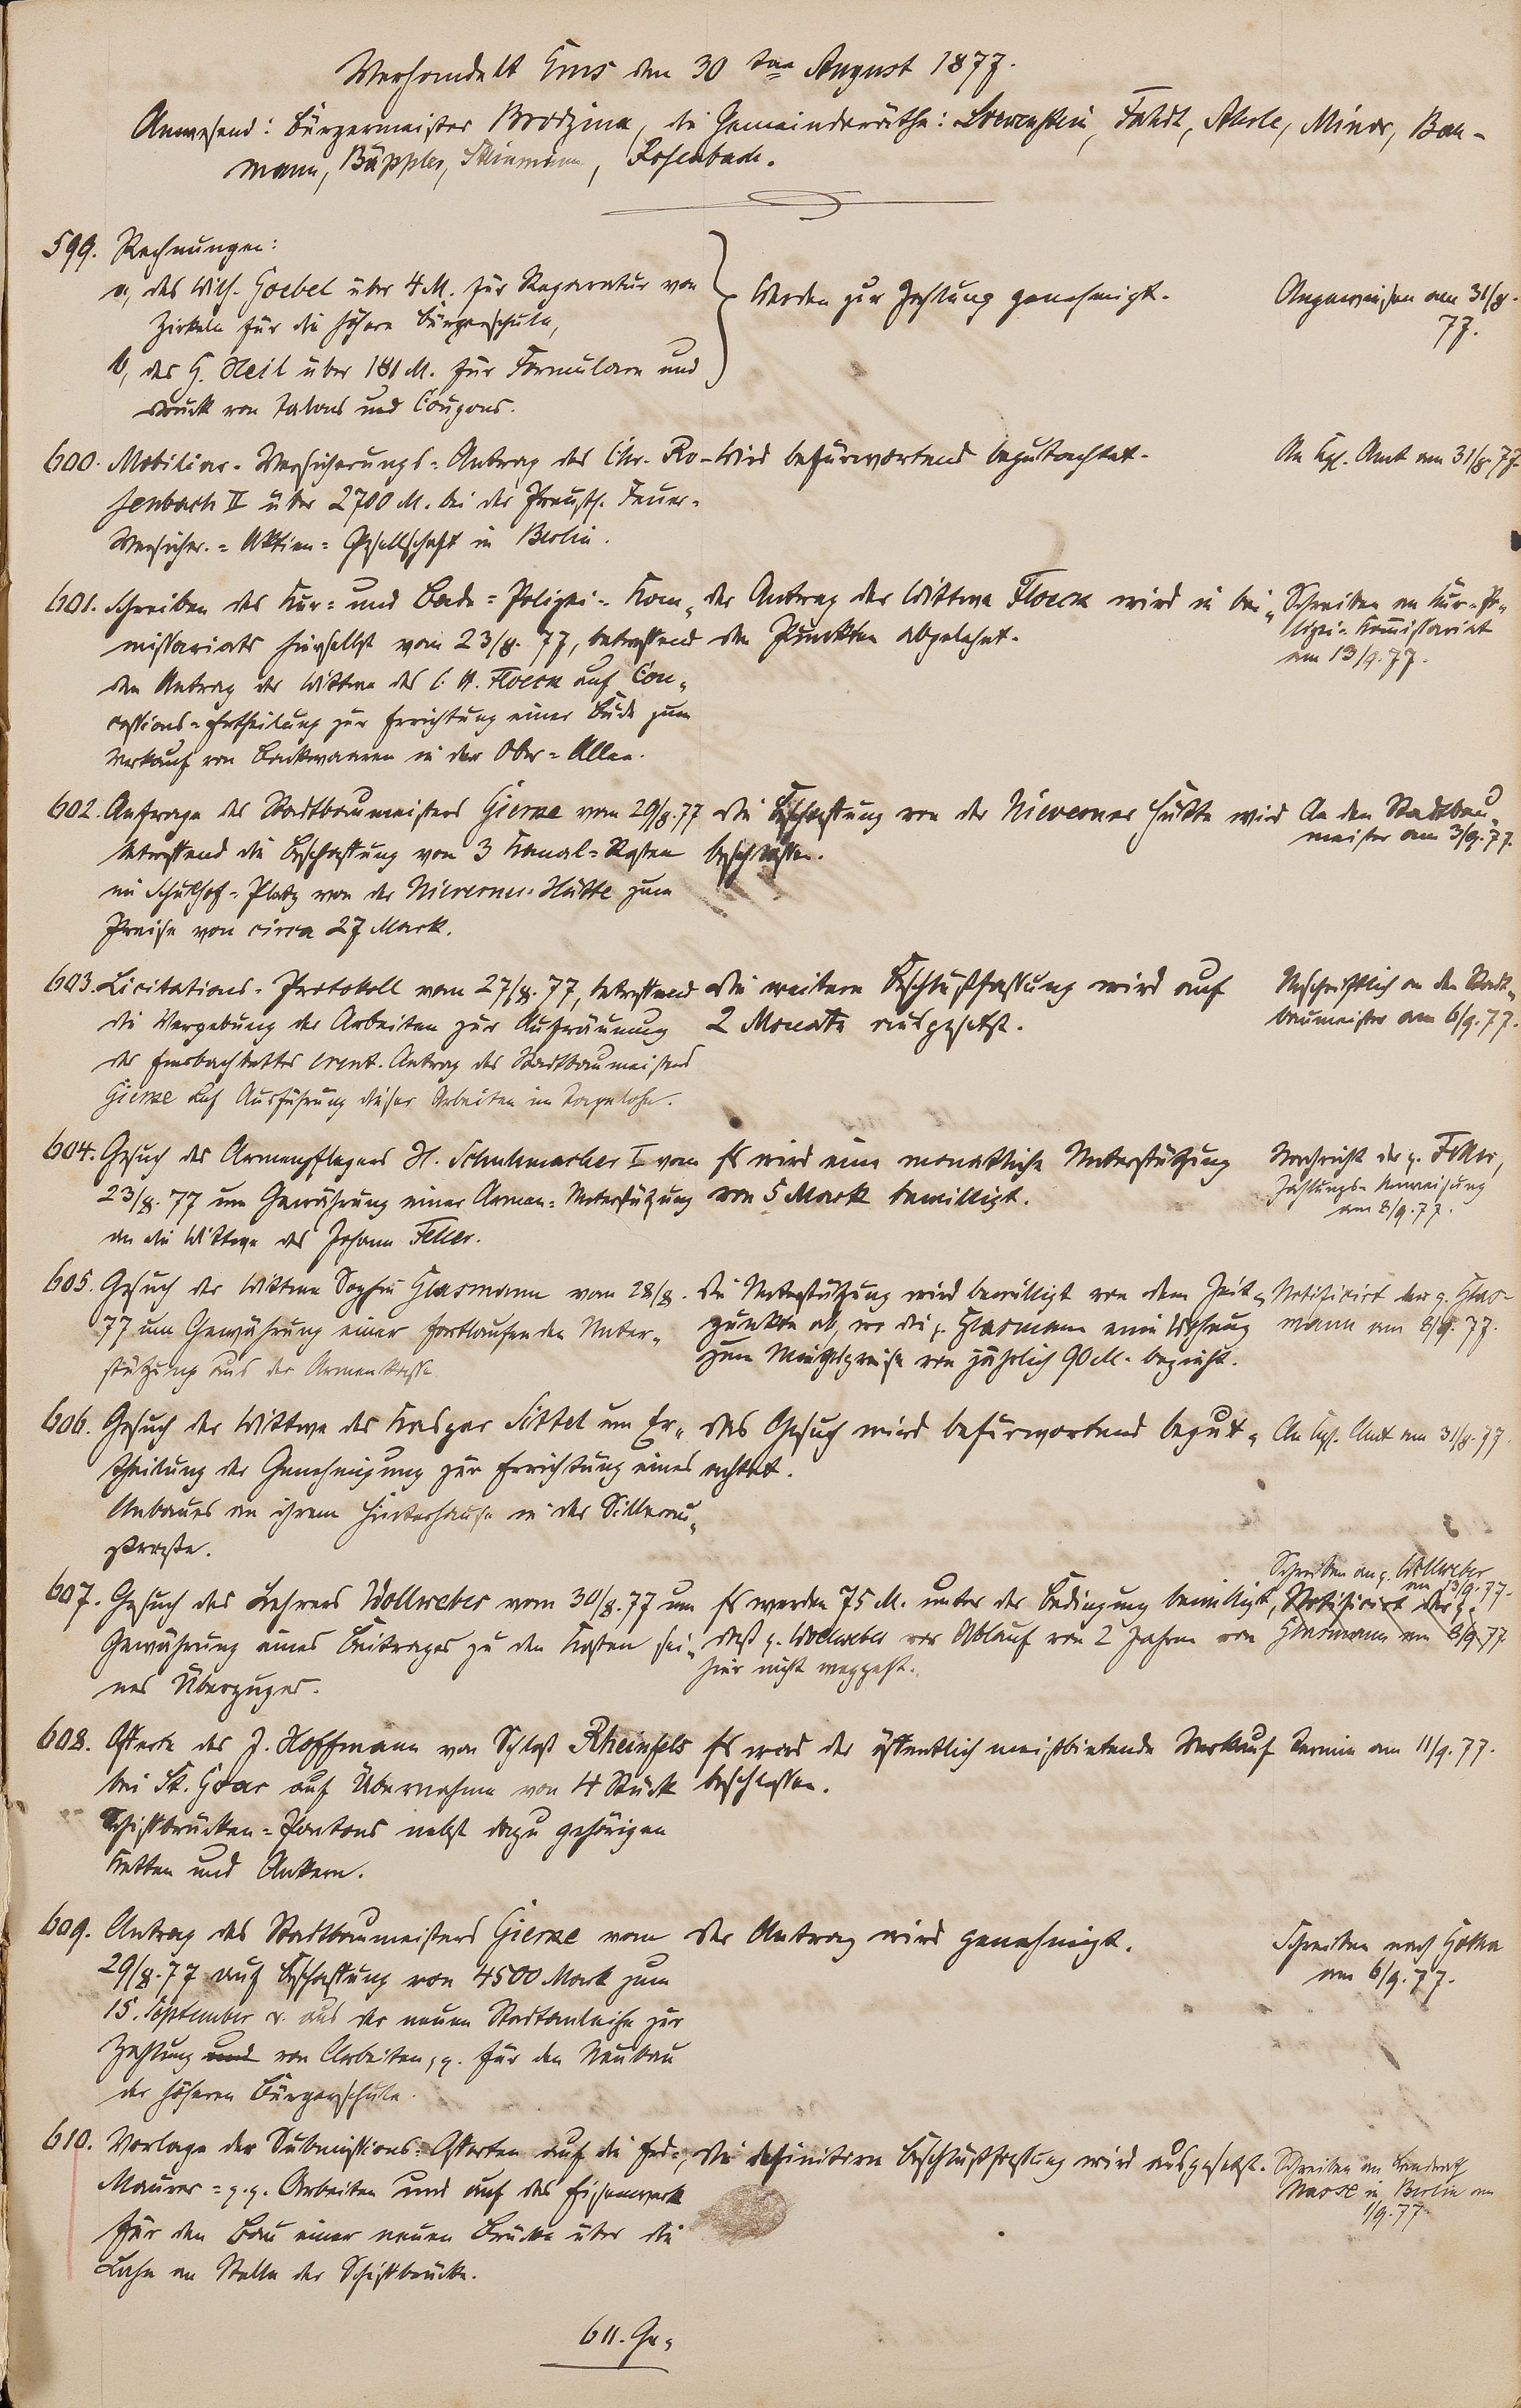 Verhandelt Ems den 30 ten August 1877.
Anwesend: Bürgermeister Brodzina, die Gemeinderäthe: Loewenstein, Fahdt, Minor, Bau-
mann, Bäppler, Rosenbach.
599. Rechnungen:
a, des Wilh. Goebel über 4 M. für Reparatur von
Zirkeln für die höhere Bürgerschule,
b, des G. Heil über 181 M. für Formulare und
Druck von Talons und Coupons.
Werden zur Zahlung genehmigt.
Angewiesen am 31/8.
77.
600. Mobiliar-Versicherungs-Antrag des Chr. Ro-
senbach II über 2700 M. bei der Preuß. Feuer-
Versicher.-Aktien-Gesellschaft in Berlin.
Wird befürwortend begutachtet.
An Kgl. Amt am 31/8.77.
601. Schreiben des Kur- und Bade-Polizei-Kom-
missariats hierselbst vom 23/8.77, betreffend
den Antrag der Wittwe des C. A. Floeck auf Con-
cessions-Ertheilung zur Errichtung einer Bude zum
Verkauf von Backwaaren in der Ober-Allee.
Der Antrag der Wittwe Floeck wird in bei-
den Punkten abgelehnt.
Schreiben an Kur-Po-
lizei-Kommissariat
am 13/9.77.
602. Anfrage des Stadtbaumeisters Gierse vom 29/8.77
betreffend die Beschaffung von 3 Kanal-Rosten
im Schulhof-Platz von der Nieverner-Hütte zum
Preise von circa 27 Mark.
Die Beschaffung von der Nieverner Hütte wird
beschlossen.
An den Stadtbau-
meister am 3/9.77.
603. Licitations-Protokoll vom 27/8.77, betreffend
die Vergebung der Arbeiten zur Aufräumung
des Emsbachbettes event. Antrag des Stadtbaumeisters
Gierse auf Ausführung dieser Arbeiten im Tagelohn.
Die weitere Beschlußfassung wird auf
2 Monate ausgesetzt.
Abschriftlich an den Stadt-
baumeister am 6/9.77.
604. Gesuch des Armenpflegers H. Schuhmacher I vom
23/8.77 um Gewährung einer Armen-Unterstützung
an die Wittwe des Johann Feller.
Es wird eine monatliche Unterstützung
von 5 Mark bewilligt.
Nachricht der p. Feller,
Zahlungs-Anweisung
am 8/9.77.
605. Gesuch der Wittwe Sophie Glasmann vom 28/8.
77 um Gewährung einer fortlaufenden Unter-
stützung aus der Armenkasse.
Die Unterstützung wird bewilligt von dem Zeit-
punkte ab, wo die p. Glasmann eine Wohnung
zum Miethpreise von jährlich 90 M. bezieht.
Notifizirt der p. Glas-
mann am 8/9.77.
606. Gesuch der Wittwe des Kaspar Sittel um Er-
theilung der Genehmigung zur Errichtung eines
Anbaues an ihrem Hinterhause in der Sillerau-
straße.
Das Gesuch wird befürwortend begut-
achtet.
An Kgl. Amt am 31/8.77.
607. Gesuch des Lehrers Wollweber vom 30/8.77 um
Gewährung eines Beitrages zu den Kosten sei-
nes Überzuges.
Es werden 75 M. unter der Bedingung bewilligt,
daß p. Wollweber vor Ablauf von 2 Jahren von
hier nicht weggeht.
Schreiben an p. Wollweber
am 13/9.77.
Notifizirt der p.
Glasmann am 8/9.77
608. Offerte des J. Hoffmann von Schloß Rheinfels
bei St. Goar auf Übernahme von 4 Stück
Schiffbrücken-Pontons nebst dazu gehörigen
Ketten und Ankern.
Es wird der öffentlich meistbietende Verkauf
beschlossen.
Termin am 11/9.77.
609. Antrag des Stadtbaumeisters Gierse vom
29/8.77 auf Beschaffung von 4500 Mark zum
15. September cr. aus der neuen Stadtanleihe zur
Zahlung und von Arbeiten pp. für den Neubau
der höheren Bürgerschule.
Der Antrag wird genehmigt.
Schreiben nach Gotha
am 6/9.77.
610. Vorlage der Submissions-Offerten auf die Erd-,
Maurer- p.p. Arbeiten und auf das Eisenwerk
für den Bau einer neuen Brücke über die
Lahn an Stelle der Schiffbrücke.
Die definitive Beschlußfassung wird ausgesetzt.
Schreiben an Baurath
Masse in Berlin am
1/9.77.
611. Ge-